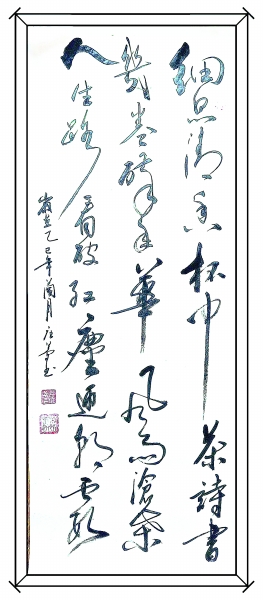 細品清香杯中茶詩書
幾卷醉年華風雨滄桑
人生路看破紅塵迎朝霞
歲在乙巳年蘭月